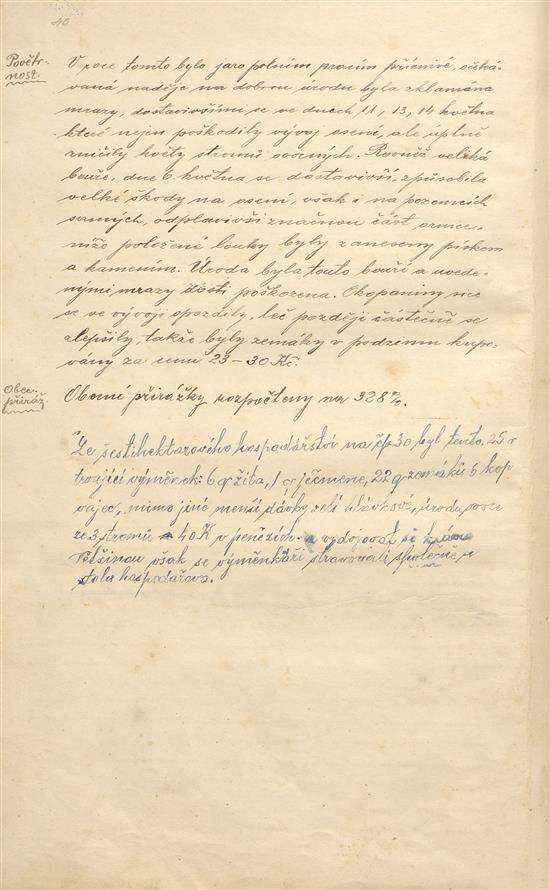 40
Povětr-
nost.
V roce tomto bylo jaro polním pracím příznivé, očeká-
vaná naděje na dobrou úrodu byla zklamána
mrazy, dostavivšími se ve dnech 11, 13, 14 května
které nejen poškodily vývoj osení, ale úplně
zničily květy stromů ovocných. Rovněž veliká
bouře, dne 6. května se dostavivší způsobila
velké škody na osení, však i na pozemcích
samých, odplavivši značnou část ornice,
níže položené louky byly zaneseny pískem
a kamením. Úroda byla touto bouří a uvede-
nými mrazy dosti poškozena. Okopaniny sice
se ve vývoji opozdily, leč později částečně se
zlepšily, takže byly zemáky v podzimu kupo-
vány za cenu 23-30 Kč.
Obec.
přiráž.
Obecní přirážky rozpočteny na 328%.
Ze šestihektarového hospodářství na čp 30 byl tento, 25 r
trvající výměnek: 6 q žita, 1 q ječmene, 22 q zemáků 5 kop
vajec, mimo jiné menší dávky zelí hlávkové, úrodu ovoce
ze 3 stromů 40 K v penězích. a vydojovat si
Většinou však se výměnkáři stravovali společně u
stolu hospodářova.